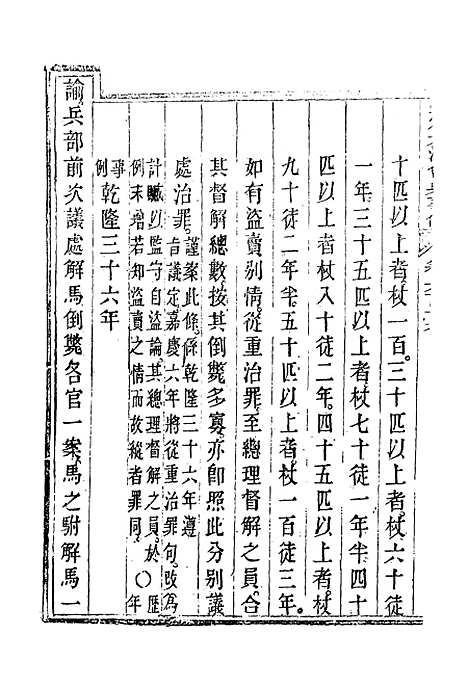 十匹以上者杖一百。三十匹以上者。杖六十徒
一年。三十五匹以上者杖七十徒一年半。四十
匹以上者杖八十徒二年。四十五匹以上者。杖
九十徒二年半。五十匹以上者。杖一百徒三年。
如有盜賣別情。從重治罪。至總理督解之員。合
其督解總數。按其倒斃多寡。亦卽照此分別議
處治罪。謹案此條。係乾隆三十六年遵
旨議定。嘉慶六年將從重治罪句。改爲
計贓以監守自盜論。其總理督解之員。於
例末增若知盜賣之情而故縱者罪同。
○歷年
事例
乾隆三十六年
諭。兵部前次議處解馬倒斃各官一案。馬之駙解馬一